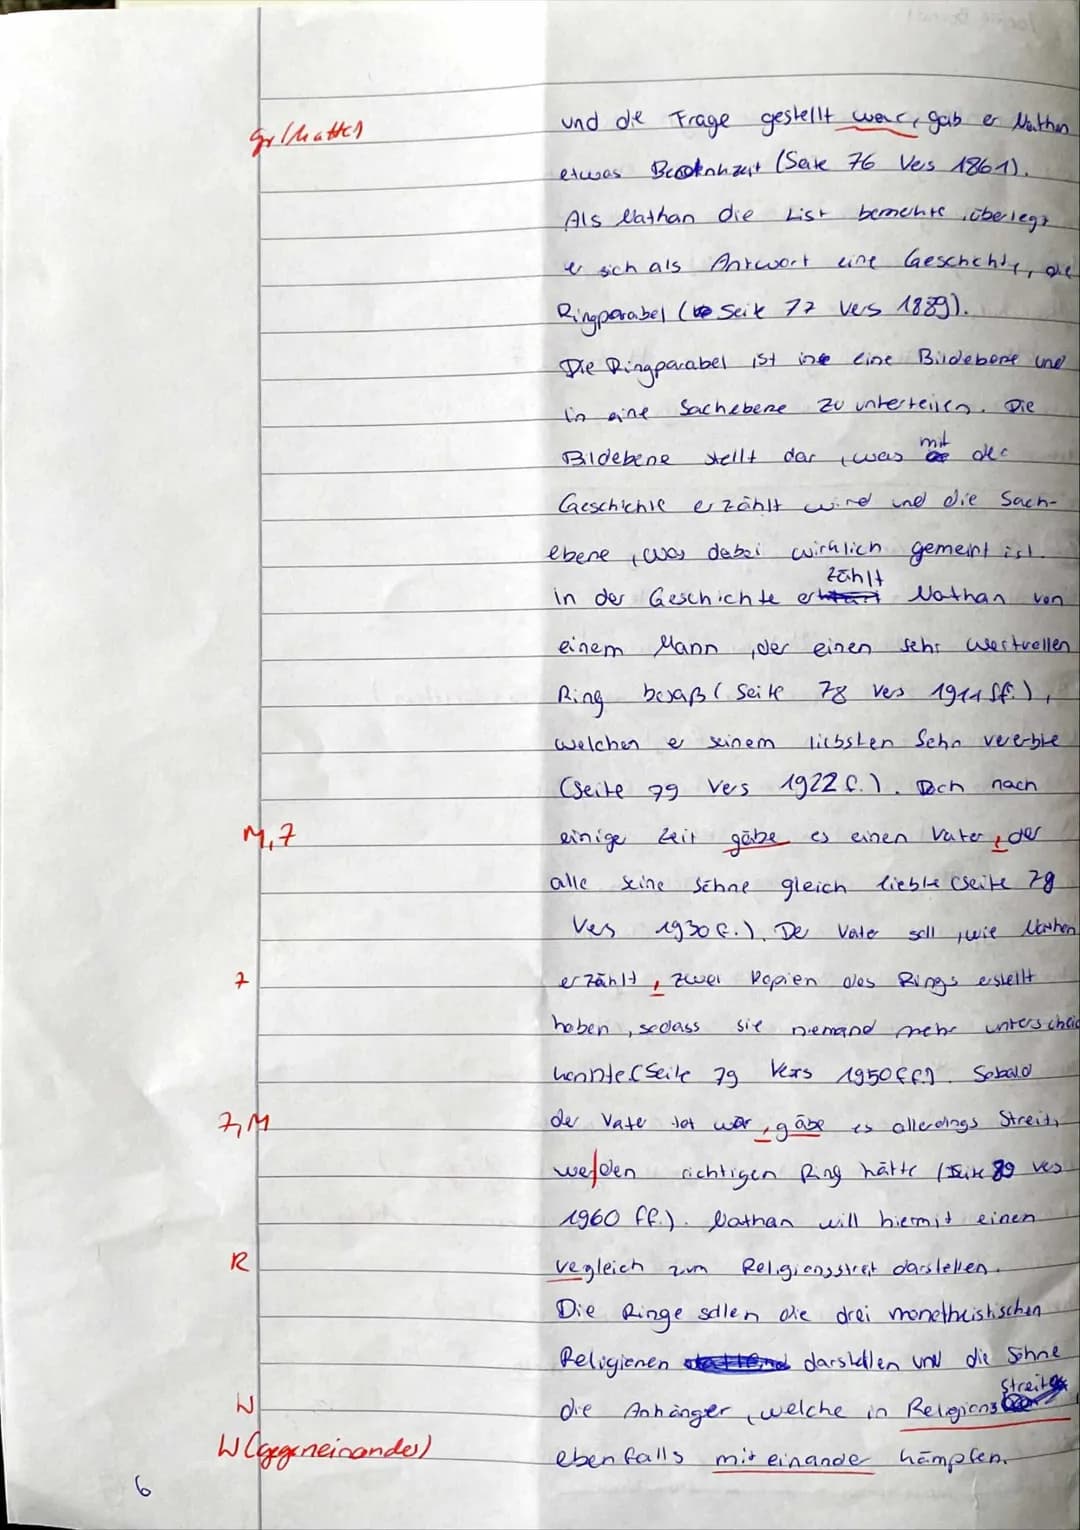 gr (hatte)
und die Frage gestellt war, gab er Nathan
etwas Bedenkzeit (Seite 76 Vers 1861).
Als Nathan die List bemerkte, überlegt
er sich als Antwort eine Geschichte, die
Ringparabel (Seite 77 Vers 1889).
Die Ringparabel ist in eine Bildebene und
in eine Sachebene zu unterteilen. Die
Bildebene stellt dar, was mit der
Geschichte erzählt wird und die Sach-
ebene, was dabei wirklich gemeint ist.
in der Geschichte erzählt Nathan von
einem Mann, der einen sehr wertvollen
Ring besaß (Seite 78 Vers 1911 ff.),
welchen er seinem liebsten Sohn vererbte
(Seite 79 Vers 1922 f.). Doch nach
M, Z
einige Zeit gäbe es einen Vater, der
alle seine Söhne gleich liebte (Seite 79
Vers 1930 f.). Der Vater soll, wie Nathan
Z
erzählt, zwei Kopien des Rings erstellt
haben, sodass sie niemand mehr unterscheid
konnte (Seite 79 Vers 1950 ff.). Sobald
Z, M
der Vater tot war, gäbe es allerdings Streit,
wer den richtigen Ring hätte (Seite 89 Vers
1960 ff.). Nathan will hiermit einen
R
vegleich zum Religionsstreit darstellen.
Die Ringe sollen die drei monotheistischen
Religionen darstellen und die Söhne
W
die Anhänger, welche in Religionsstreit
W (gegeneinander)
ebenfalls miteinander kämpfen.
6